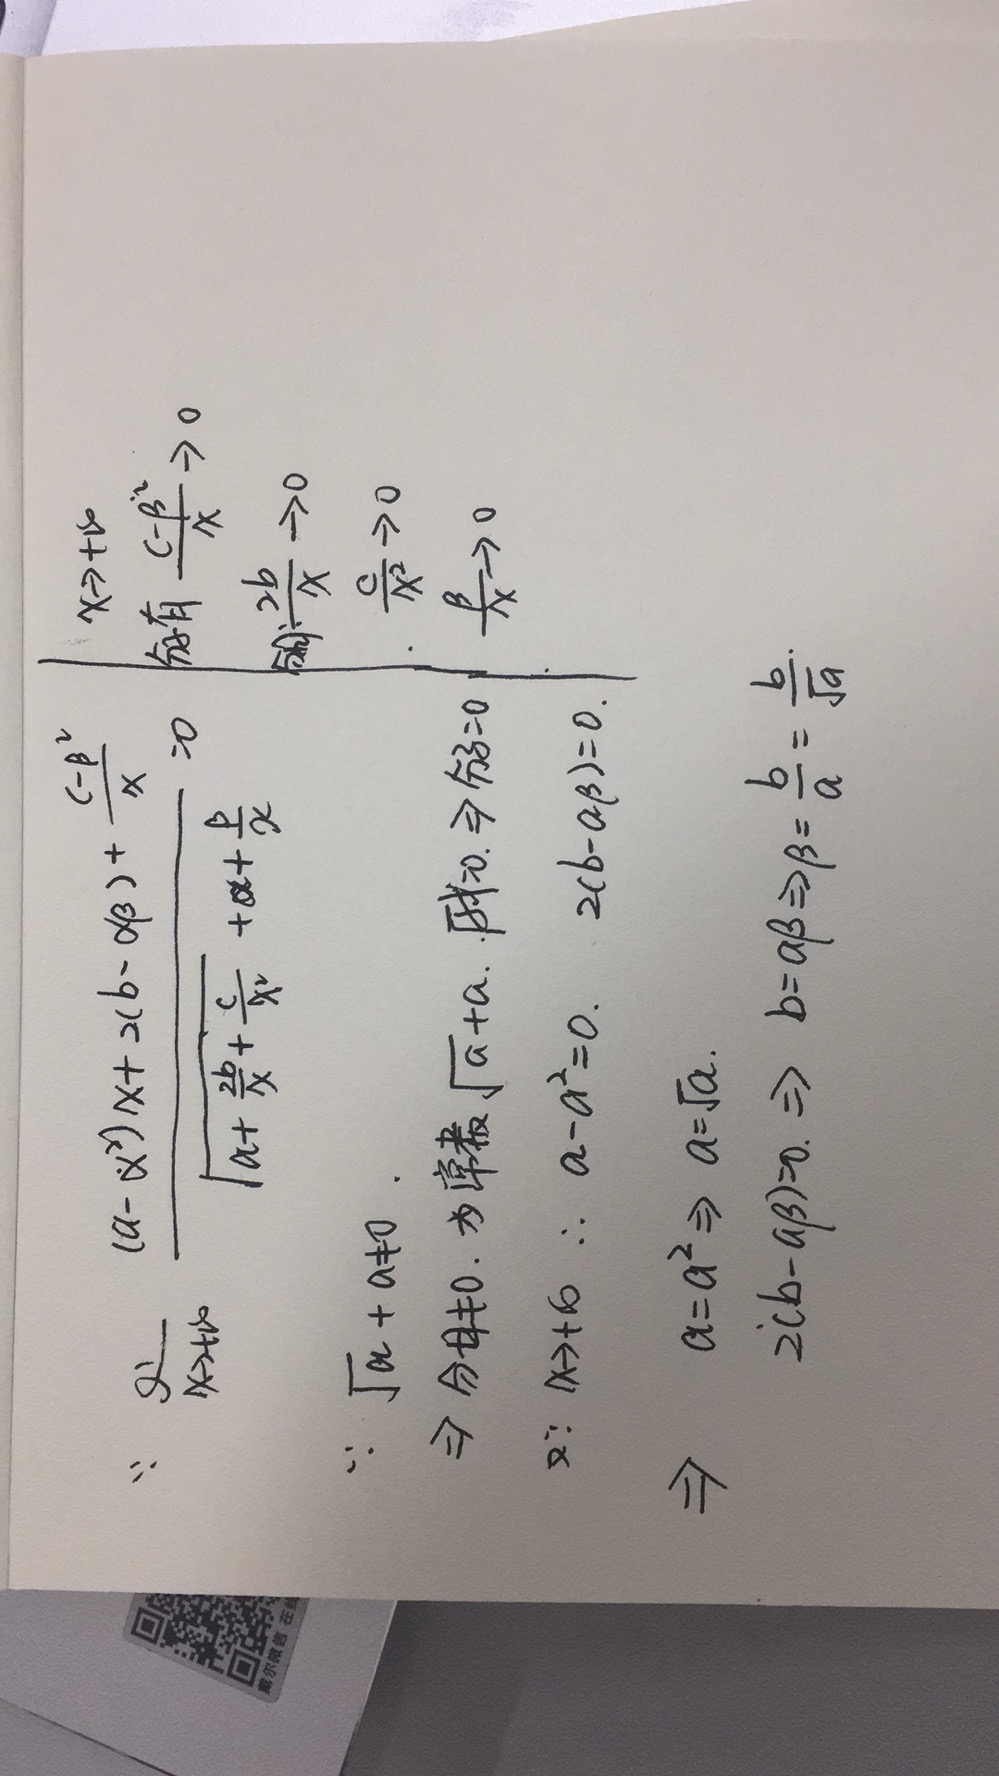 ∵ lim x→+∞ ((a-α²)x+2(b-αβ)+(c-β²)/x)/(√(a+2b/x+c/x²)+α+β/x)=0
∵ √a+a≠0.
⇒ 分母≠0. 为常数 √a+a. 所以=0. ⇒ 分子=0
又∵ x→+∞ ∴ a-a²=0. 2(b-aβ)=0.
⇒ a=a² ⇒ a=√a.
2(b-aβ)=0. ⇒ b=aβ ⇒ β=b/a=b/√a.
x→+∞
分子有 (c-β²)/x→0
分母 2b/x→0
c/x²→0
β/x→0
戴尔微信 在线